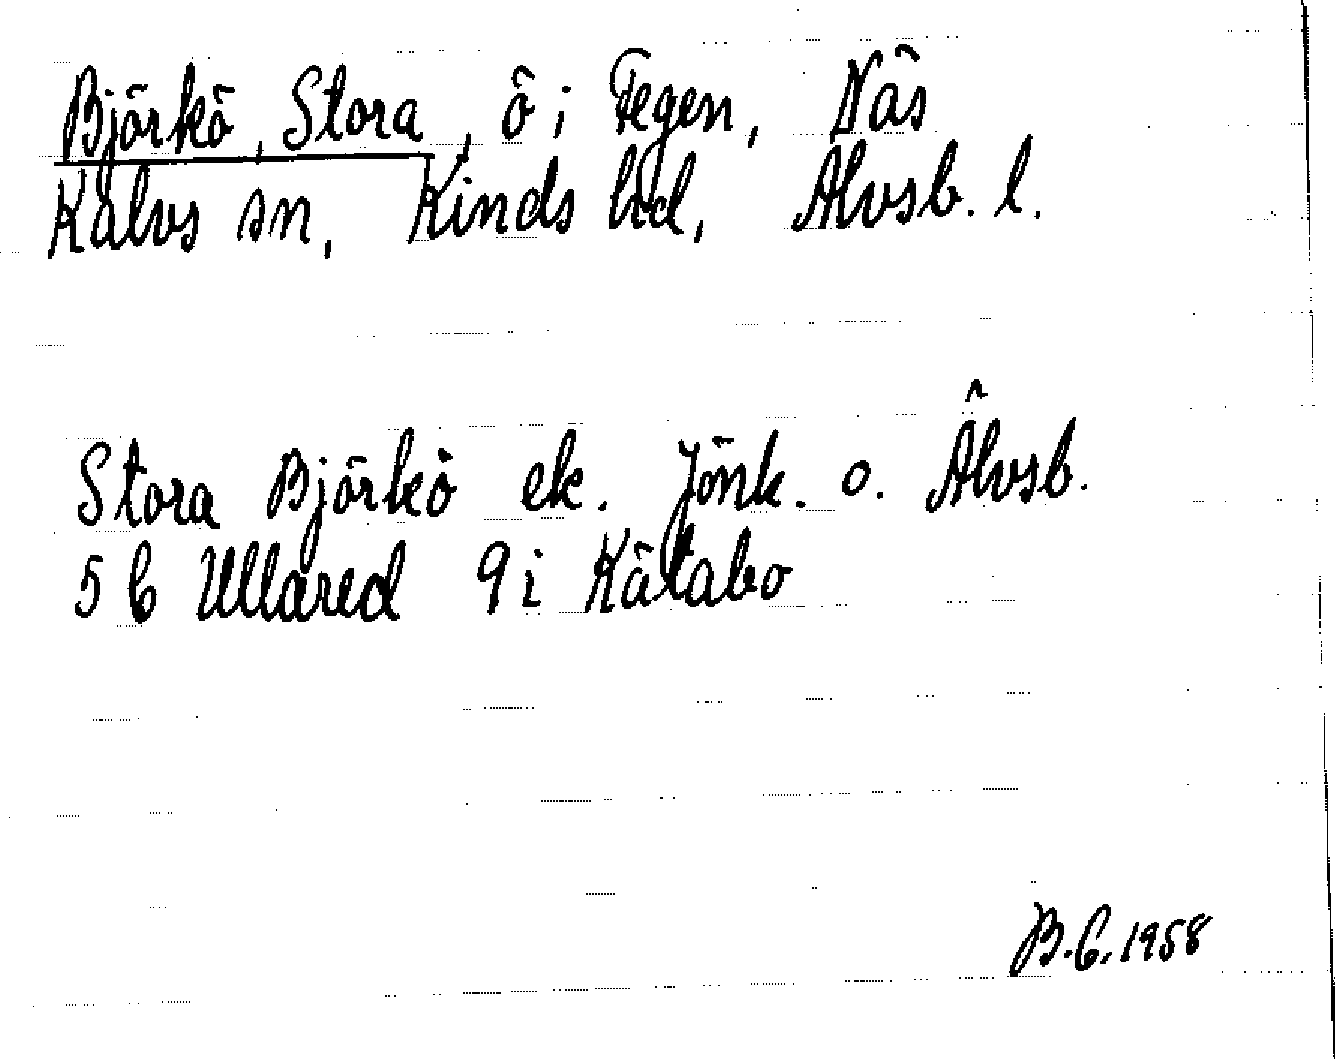 Björkö, Stora, ö i Fegen, Näs
Kalvs sn, Kinds hd, Älvsb. l.
Stora Björkö ek. Jönk. o. Älvsb.
5 C Ullared 9 i Kätabo
B.C. 1958